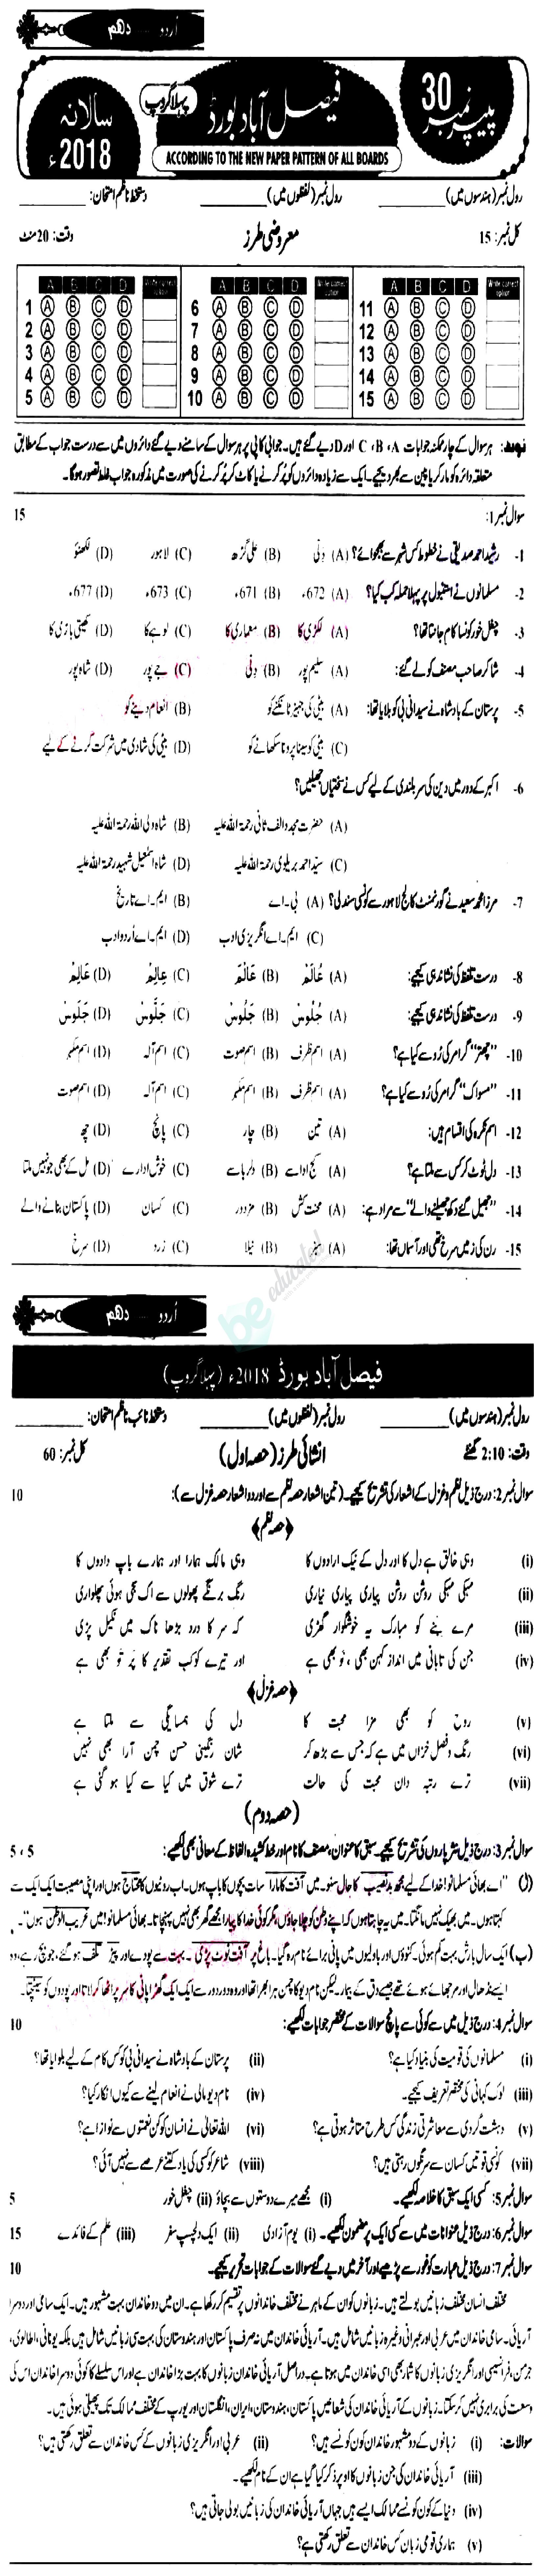 اُردو دہم
پیپر نمبر 30
فیصل آباد بورڈ
پہلا گروپ
سالانہ 2018ء
ACCORDING TO THE NEW PAPER PATTERN OF ALL BOARDS
رول نمبر (ہندسوں میں) ________ رول نمبر (لفظوں میں) ________ دستخط ناظم امتحان: ________
کل نمبر: 15 معروضی طرز وقت: 20 منٹ
A B C D Write correct option A B C D Write correct option A B C D Write correct option
1 A B C D 6 A B C D 11 A B C D
2 A B C D 7 A B C D 12 A B C D
3 A B C D 8 A B C D 13 A B C D
4 A B C D 9 A B C D 14 A B C D
5 A B C D 10 A B C D 15 A B C D
نوٹ: ہر سوال کے چار ممکنہ جوابات A ،B ،C اور D دیے گئے ہیں۔ جوابی کاپی پر ہر سوال کے سامنے دیے گئے دائروں میں سے درست جواب کے مطابق
متعلقہ دائرہ کو مارکر یا پین سے بھر دیجیے۔ ایک سے زیادہ دائروں کو پُر کرنے یا کاٹ کر پُر کرنے کی صورت میں مذکورہ جواب غلط تصور ہوگا۔
سوال نمبر 1: 15
1- رشید احمد صدیقی نے خطوط کس شہر سے بھجوائے؟ (A) دلّی (B) علی گڑھ (C) لاہور (D) لکھنؤ
2- مسلمانوں نے استنبول پر پہلا حملہ کب کیا؟ (A) 672ء (B) 671ء (C) 673ء (D) 677ء
3- چغل خور کونسا کام جانتا تھا؟ (A) لکڑی کا (B) معماری کا (C) لوہے کا (D) کھیتی باڑی کا
4- شاکر صاحب مصنف کو لے گئے: (A) سلیم پور (B) دلّی (C) جے پور (D) شاہ پور
5- پرستان کے بادشاہ نے سیدانی بی کو بلایا تھا: (A) بیٹی کی جہیز ٹانکنے کو (B) انعام دینے کو
(C) بیٹی کو سینا پرونا سکھانے کو (D) بیٹی کی شادی میں شرکت کرنے کے لیے
6- اکبر کے دور میں دین کی سربلندی کے لیے کس نے سختیاں جھیلیں؟
(A) حضرت مجدد الف ثانی رحمۃ اللہ علیہ (B) شاہ ولی اللہ رحمۃ اللہ علیہ
(C) سیّد احمد بریلوی رحمۃ اللہ علیہ (D) شاہ اسمٰعیل شہید رحمۃ اللہ علیہ
7- مرزا محمد سعید نے گورنمنٹ کالج لاہور سے کونسی سند لی؟ (A) بی۔اے (B) ایم۔اے تاریخ
(C) ایم۔اے انگریزی ادب (D) ایم۔اے اُردو ادب
8- درست تلفظ کی نشاندہی کیجیے: (A) عُالَمْ (B) عَالَمْ (C) عِالِمْ (D) عَالِمْ
9- درست تلفظ کی نشاندہی کیجیے: (A) جُلُوسْ (B) جَلُوسْ (C) جَلُّوسْ (D) جَلَوسْ
10- "چھتر" گرامر کی رُو سے کیا ہے؟ (A) اسم ظرف (B) اسم صوت (C) اسم آلہ (D) اسم مکبر
11- "مسواک" گرامر کی رُو سے کیا ہے؟ (A) اسم ظرف (B) اسم مکبر (C) اسم آلہ (D) اسم صوت
12- اسم نکرہ کی اقسام ہیں: (A) تین (B) چار (C) پانچ (D) چھ
13- دل ٹوٹ کر کس سے ملتا ہے؟ (A) کج ادا سے (B) دلربا سے (C) خوش ادا رے (D) مل کے بھی جو نہیں ملتا
14- "جھیل گئے دکھ جھیلنے والے" سے مراد ہے: (A) محنت کش (B) مزدور (C) کسان (D) پاکستان بنانے والے
15- رن کی زمیں سرخ تھی اور آسماں تھا: (A) سبز (B) نیلا (C) زرد (D) سرخ
be educated
اُردو دہم
فیصل آباد بورڈ 2018ء (پہلا گروپ)
رول نمبر (ہندسوں میں) ________ رول نمبر (لفظوں میں) ________ دستخط نائب ناظم امتحان: ________
وقت: 2:10 گھنٹے انشائی طرز (حصہ اول) کل نمبر: 60
سوال نمبر 2: درج ذیل نظم و غزل کے اشعار کی تشریح کیجیے۔ (تین اشعار حصہ نظم سے اور دو اشعار حصہ غزل سے): 10
﴿حصہ نظم﴾
(i) وہی خالق ہے دل کا اور دل کے نیک ارادوں کا وہی مالک ہمارا اور ہمارے باپ دادوں کا
(ii) مہکی مہکی روشن روشن پیاری پیاری نیاری رنگ برنگے پھولوں سے اک سجی ہوئی پھلواری
(iii) مرے بنے کو مبارک یہ خوشگوار گھڑی کہ سر کا درد بڑھا ناک میں نکیل پڑی
(iv) جن کی تابانی میں انداز کہن بھی، نو بھی ہے اور تیرے کوکب تقدیر کا پر تو بھی ہے
﴿حصہ غزل﴾
(v) روح کو بھی مزا محبت کا دل کی ہمسائیگی سے ملتا ہے
(vi) رنگ و فصل خزاں میں ہے کہ جس سے بڑھ کر شان رنگینی حسن چمن آرا بھی نہیں
(vii) ترے رتبہ دان محبت کی حالت ترے شوق میں کیا سے کیا ہو گئی ہے
(حصہ دوم)
سوال نمبر 3: درج ذیل نثر پاروں کی تشریح کیجیے۔ سبق کا عنوان، مصنف کا نام اور خط کشیدہ الفاظ کے معانی بھی لکھیے: 5 ، 5
(ا) "اے بھائی مسلمانو! خدا کے لیے مجھ بدنصیب کا حال سنو۔ میں آفت کا مارا سات بچوں کا باپ ہوں۔ اب روٹیوں کا محتاج ہوں اور اپنی مصیبت ایک ایک سے
کہتا ہوں۔ میں بھیک نہیں مانگتا۔ میں یہ چاہتا ہوں کہ اپنے وطن کو چلا جاؤں مگر کوئی خدا کا پیارا مجھے گھر بھی نہیں پہنچاتا۔ بھائی مسلمانو! میں غریب الوطن ہوں"۔
(ب) ایک سال بارش بہت کم ہوئی۔ کنوؤں اور باولیوں میں پانی برائے نام رہ گیا۔ باغ پر آفت ٹوٹ پڑی۔ بہت سے پودے اور پیڑ تلف ہو گئے، جو بچ رہے، وہ
ایسے نڈھال اور مرجھائے ہوئے تھے جیسے دق کے بیمار۔ لیکن نام دیو کا چمن ہرا بھرا تھا اور وہ دور دور سے ایک ایک گھڑا پانی کا سر پر اٹھا کر لاتا اور پودوں کو سینچتا۔
سوال نمبر 4: درج ذیل میں سے کوئی سے پانچ سوالات کے مختصر جوابات لکھیے: 10
(i) مسلمانوں کی قومیت کی بنیاد کیا ہے؟ (ii) پرستان کے بادشاہ نے سیدانی بی کو کس کام کے لیے بلوایا تھا؟
(iii) لوک کہانی کی مختصر تعریف کیجیے۔ (iv) نام دیو مالی نے انعام لینے سے کیوں انکار کیا؟
(v) دہشت گردی سے معاشرتی زندگی کس طرح متاثر ہوتی ہے؟ (vi) اللہ تعالیٰ نے انسان کو کن نعمتوں سے نوازا ہے؟
(vii) کونسی قوتیں کسان سے سرنگوں رہتی ہیں؟ (viii) شاعر کو کسی کی یاد کتنے عرصے سے نہیں آئی؟
سوال نمبر 5: کسی ایک سبق کا خلاصہ لکھیے۔ (i) مجھے میرے دوستوں سے بچاؤ (ii) چغل خور 5
سوال نمبر 6: درج ذیل عنوانات میں سے کسی ایک پر مضمون لکھیے۔ (i) یوم آزادی (ii) ایک دلچسپ سفر (iii) علم کے فائدے 15
سوال نمبر 7: درج ذیل عبارت کو غور سے پڑھیے اور آخر میں دیے گئے سوالات کے جوابات تحریر کیجیے۔ 10
مختلف انسان مختلف زبانیں بولتے ہیں۔ زبانوں کو ان کے ماہر نے مختلف خاندانوں پر تقسیم کر رکھا ہے۔ ان میں دو خاندان بہت مشہور ہیں۔ ایک سامی اور دوسرا
آریائی۔ سامی خاندان میں عربی اور عبرانی وغیرہ زبانیں شامل ہیں۔ آریائی خاندان میں نہ صرف پاکستان اور ہندوستان کی بہت سی زبانیں شامل ہیں بلکہ یونانی، اطالوی،
جرمن، فرانسیسی اور انگریزی زبانوں کا شمار بھی اسی خاندان میں ہوتا ہے۔ دراصل آریائی خاندان زبانوں کا بہت بڑا خاندان ہے اور اس سلسلے کا کوئی دوسرا خاندان اس کی
وسعت کی برابری نہیں کر سکتا۔ زبانوں کے آریائی خاندان کی شعائیں پاکستان، ہندوستان، ایران، انگلستان اور یورپ کے مختلف ممالک تک پھیلی ہوئی ہیں۔
سوالات: (i) زبانوں کے دو مشہور خاندان کون کونسے ہیں؟ (ii) عربی اور انگریزی زبانوں کے کس خاندان سے تعلق رکھتی ہیں؟
(iii) آریائی خاندان کی جن زبانوں کا اوپر ذکر کیا گیا ہے ان کے نام لکھیے۔
(iv) دنیا کے کون کونسے ممالک ایسے ہیں جہاں آریائی خاندان کی زبانیں بولی جاتی ہیں؟
(v) ہماری قومی زبان کس خاندان سے تعلق رکھتی ہے؟